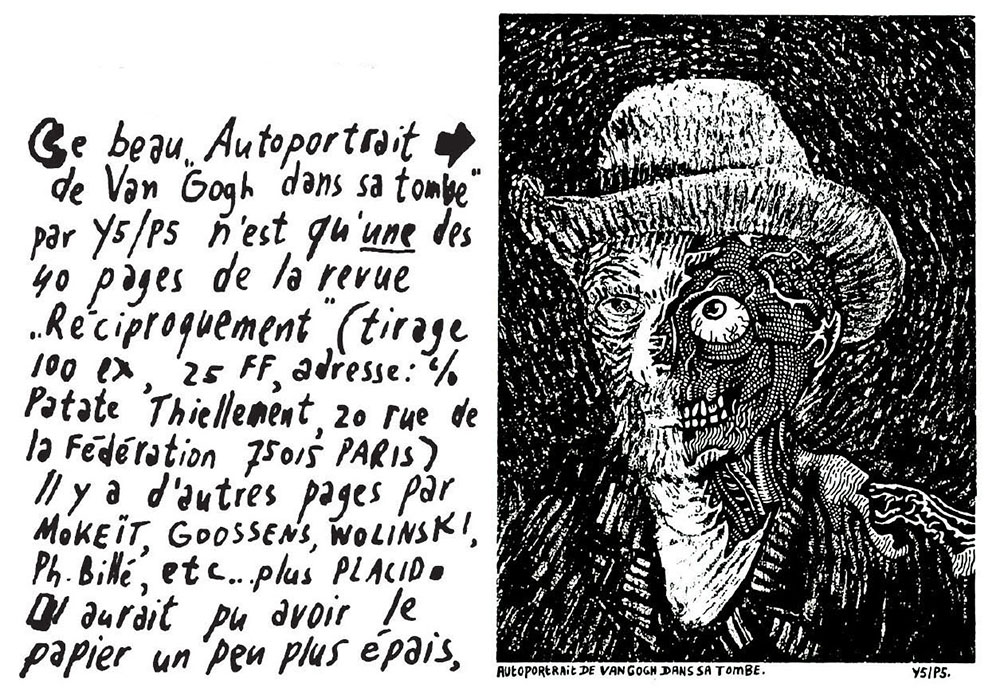 Ce beau „Autoportrait
de Van Gogh dans sa tombe"
par Y5/P5 n'est qu'une des
40 pages de la revue
„Réciproquement" (tirage
100 ex, 25 FF, adresse: %
Patate Thiellement, 20 rue de
la Fédération 75015 PARIS)
Il y a d'autres pages par
MOKEÏT, GOOSSENS, WOLINSKI,
Ph. Billé, etc...plus PLACID.
Il aurait pu avoir le
papier un peu plus épais,
AUTOPORTRAIT DE VAN GOGH DANS SA TOMBE. Y5/P5.